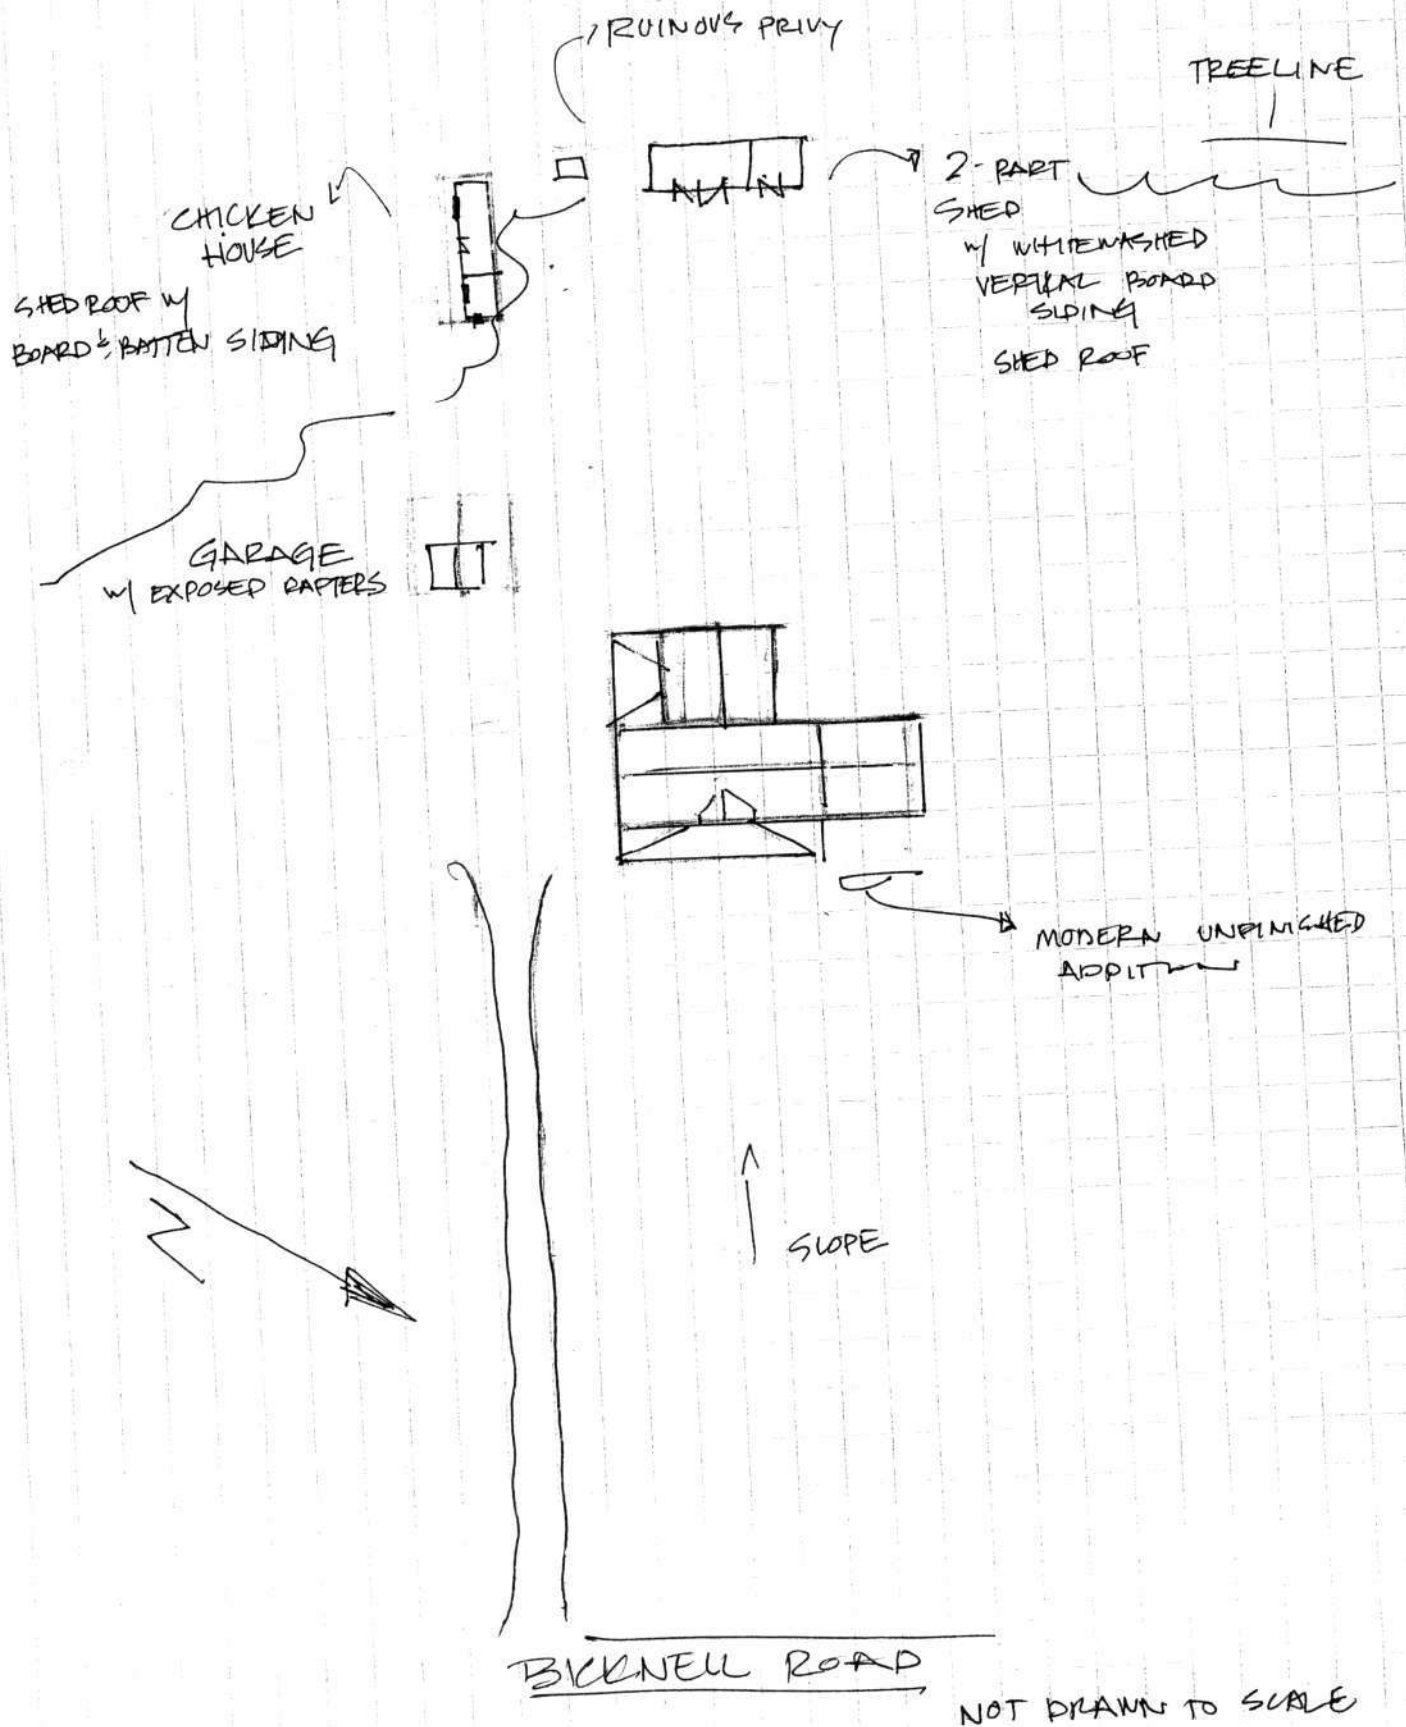 RUINOUS PRIVY
TREELINE
CHICKEN
HOUSE
SHED ROOF w/
BOARD & BATTEN SIDING
2-PART
SHED
w/ WHITEWASHED
VERTICAL BOARD
SIDING
SHED ROOF
GARAGE
w/ EXPOSED RAFTERS
MODERN UNFINISHED
ADDITION
N
SLOPE
BICKNELL ROAD
NOT DRAWN TO SCALE